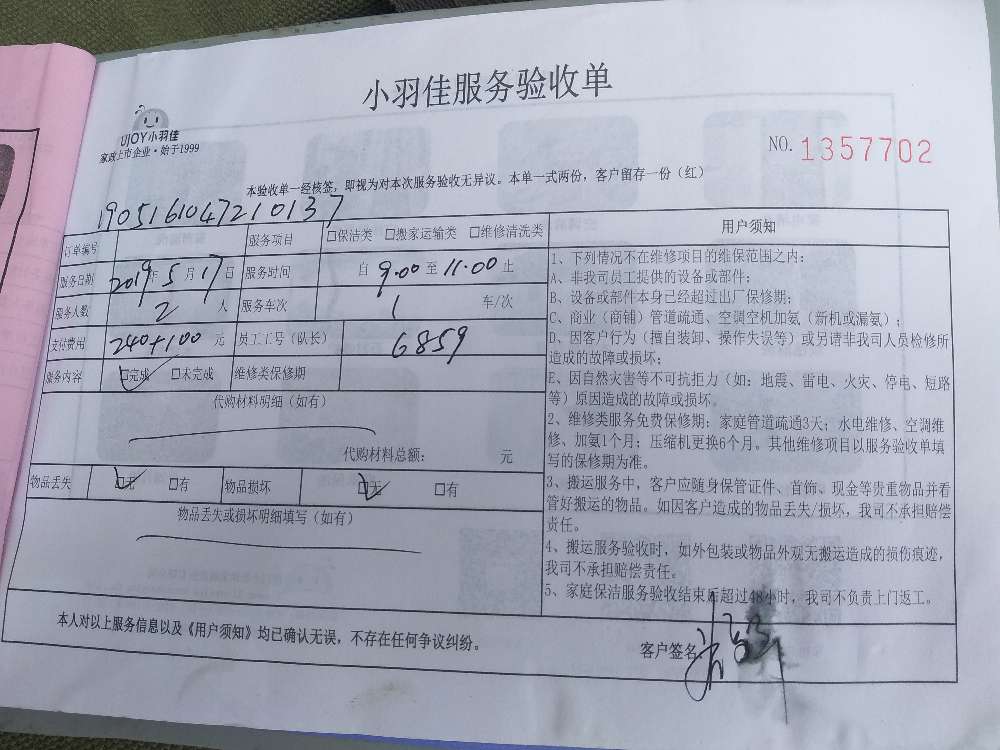 小羽佳服务验收单
UJOY小羽佳
家政上市企业·始于1999
NO. 1357702
本验收单一经核签，即视为对本次服务验收无异议。本单一式两份，客户留存一份（红）
190516104721０137
订单编号 服务项目 □保洁类 □搬家运输类 □维修清洗类
服务日期 2019年5月17日 服务时间 自9:00至11:00止
服务人数 2人 服务车次 1 车/次
支付费用 240+100元 员工工号（队长） 6859
服务内容 ☑完成 □未完成 维修类保修期
代购材料明细（如有）
代购材料总额： 元
物品丢失 ☑无 □有 物品损坏 ☑无 □有
物品丢失或损坏明细填写（如有）
用户须知
1、下列情况不在维修项目的维保范围之内：
A、非我司员工提供的设备或部件；
B、设备或部件本身已经超过出厂保修期；
C、商业（商铺）管道疏通、空调空机加氨（新机或漏氨）；
D、因客户行为（擅自装卸、操作失误等）或另请非我司人员检修所
造成的故障或损坏；
E、因自然灾害等不可抗拒力（如：地震、雷电、火灾、停电、短路
等）原因造成的故障或损坏。
2、维修类服务免费保修期：家庭管道疏通3天；水电维修、空调维
修、加氨1个月；压缩机更换6个月。其他维修项目以服务验收单填
写的保修期为准。
3、搬运服务中，客户应随身保管证件、首饰、现金等贵重物品并看
管好搬运的物品。如因客户造成的物品丢失/损坏，我司不承担赔偿
责任。
4、搬运服务验收时，如外包装或物品外观无搬运造成的损伤痕迹，
我司不承担赔偿责任。
5、家庭保洁服务验收结束后超过48小时，我司不负责上门返工。
本人对以上服务信息以及《用户须知》均已确认无误，不存在任何争议纠纷。
客户签名：